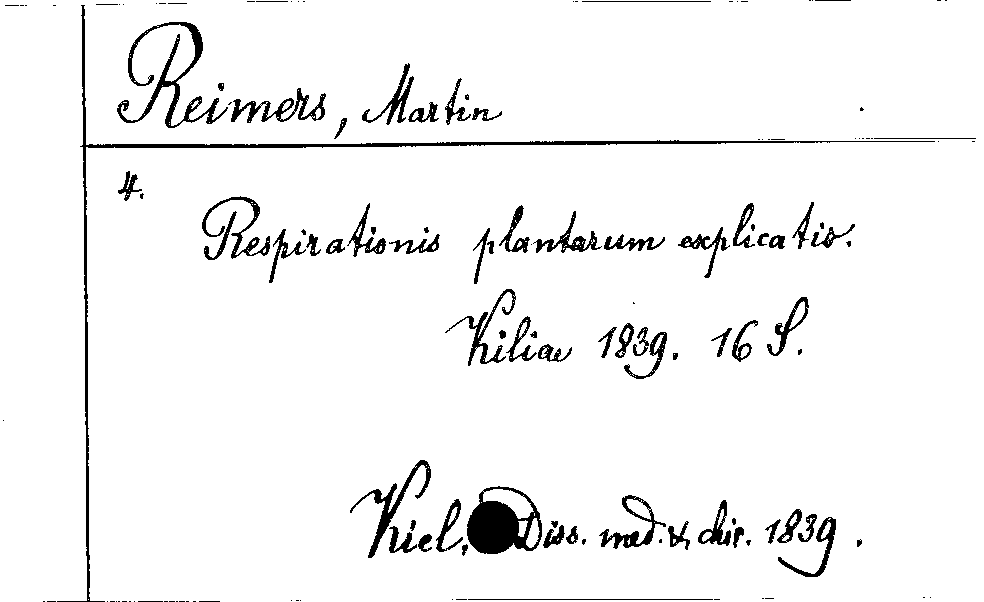 Reimers, Martin
4.
Respirationis plantarum explicatio.
Kiliae 1839. 16 S.
Kiel. Diss. med. & chir. 1839.